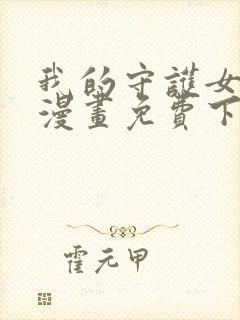 我的守護女
漫畫免費下
霍元甲